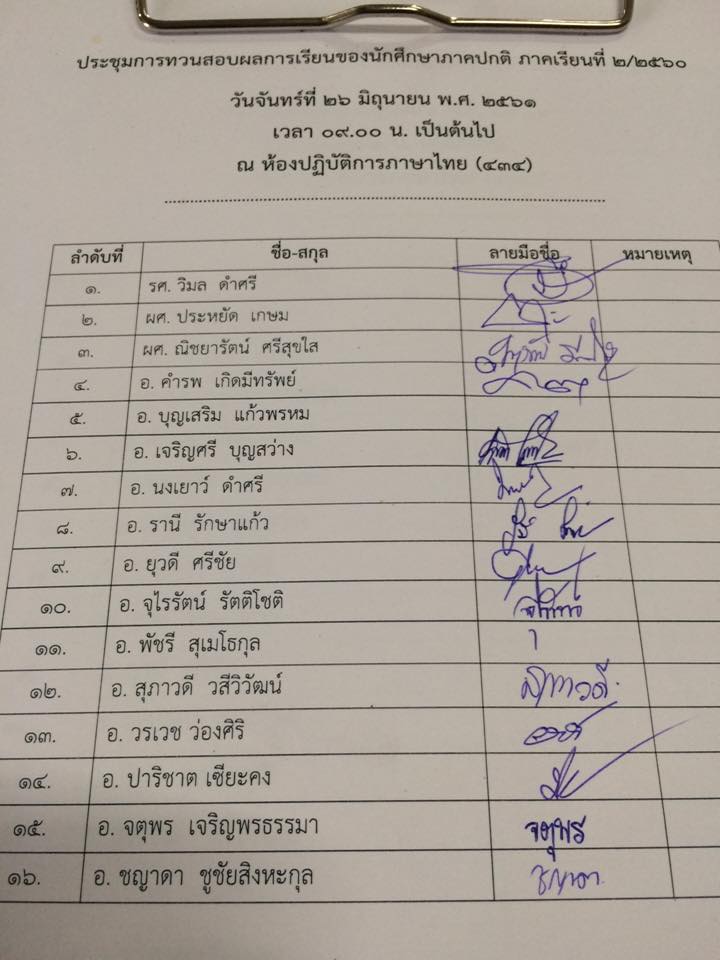 ประชุมการทวนสอบผลการเรียนของนักศึกษาภาคปกติ ภาคเรียนที่ ๒/๒๕๖๐
วันจันทร์ที่ ๒๖ มิถุนายน พ.ศ. ๒๕๖๑
เวลา ๐๙.๐๐ น. เป็นต้นไป
ณ ห้องปฏิบัติการภาษาไทย (๔๓๔)
ลำดับที่ ชื่อ-สกุล ลายมือชื่อ หมายเหตุ
๑. รศ. วิมล ดำศรี
๒. ผศ. ประหยัด เกษม
๓. ผศ. ณิชยารัตน์ ศรีสุขใส
๔. อ. คำรพ เกิดมีทรัพย์
๕. อ. บุญเสริม แก้วพรหม
๖. อ. เจริญศรี บุญสว่าง
๗. อ. นงเยาว์ ดำศรี
๘. อ. รานี รักษาแก้ว
๙. อ. ยุวดี ศรีชัย
๑๐. อ. จุไรรัตน์ รัตติโชติ
๑๑. อ. พัชรี สุเมโธกุล
๑๒. อ. สุภาวดี วสีวิวัฒน์ สุภาวดี
๑๓. อ. วรเวช ว่องศิริ
๑๔. อ. ปาริชาต เซียะคง
๑๕. อ. จตุพร เจริญพรธรรมา จตุพร
๑๖. อ. ชญาดา ชูชัยสิงหะกุล ชญาดา